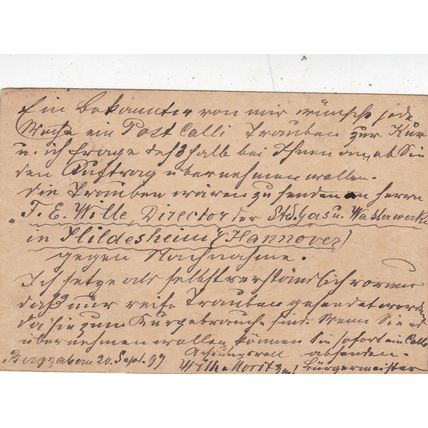 Ein Bekannter von mir wünscht jede
Woche ein Post Colli Trauben zur Kur
u. ich frage deshalb bei Ihnen an, ob Sie
den Auftrag übernehmen wollen.
Die Trauben wären zu senden an Herrn
T. E. Wille, Director der Std. Gas u. Wasserwerke
in Hildesheim (Hannover)
gegen Nachnahme.
Ich setze als selbstverständlich voraus
daß nur reife Trauben gesendet werden
da sie zum Kurgebrauche sind. Wenn Sie es
übernehmen wollen können Sie sofort ein Colli
absenden.
Bergzabern 20. Sept. 97 Achtungsvoll
Wilh. Moritz Bürgermeister